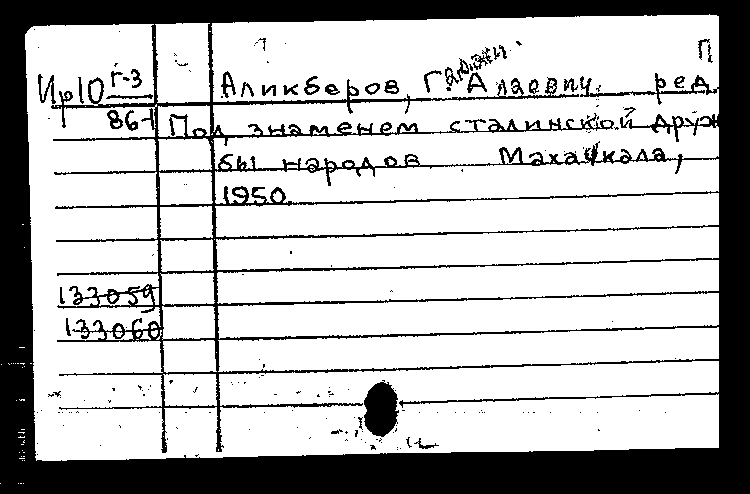 П
Ир10 Г-3 Аликберов, Г. Алаевич, ред.
86-1 Под знаменем сталинской друж
бы народов Махачкала,
1950.
133059
133060